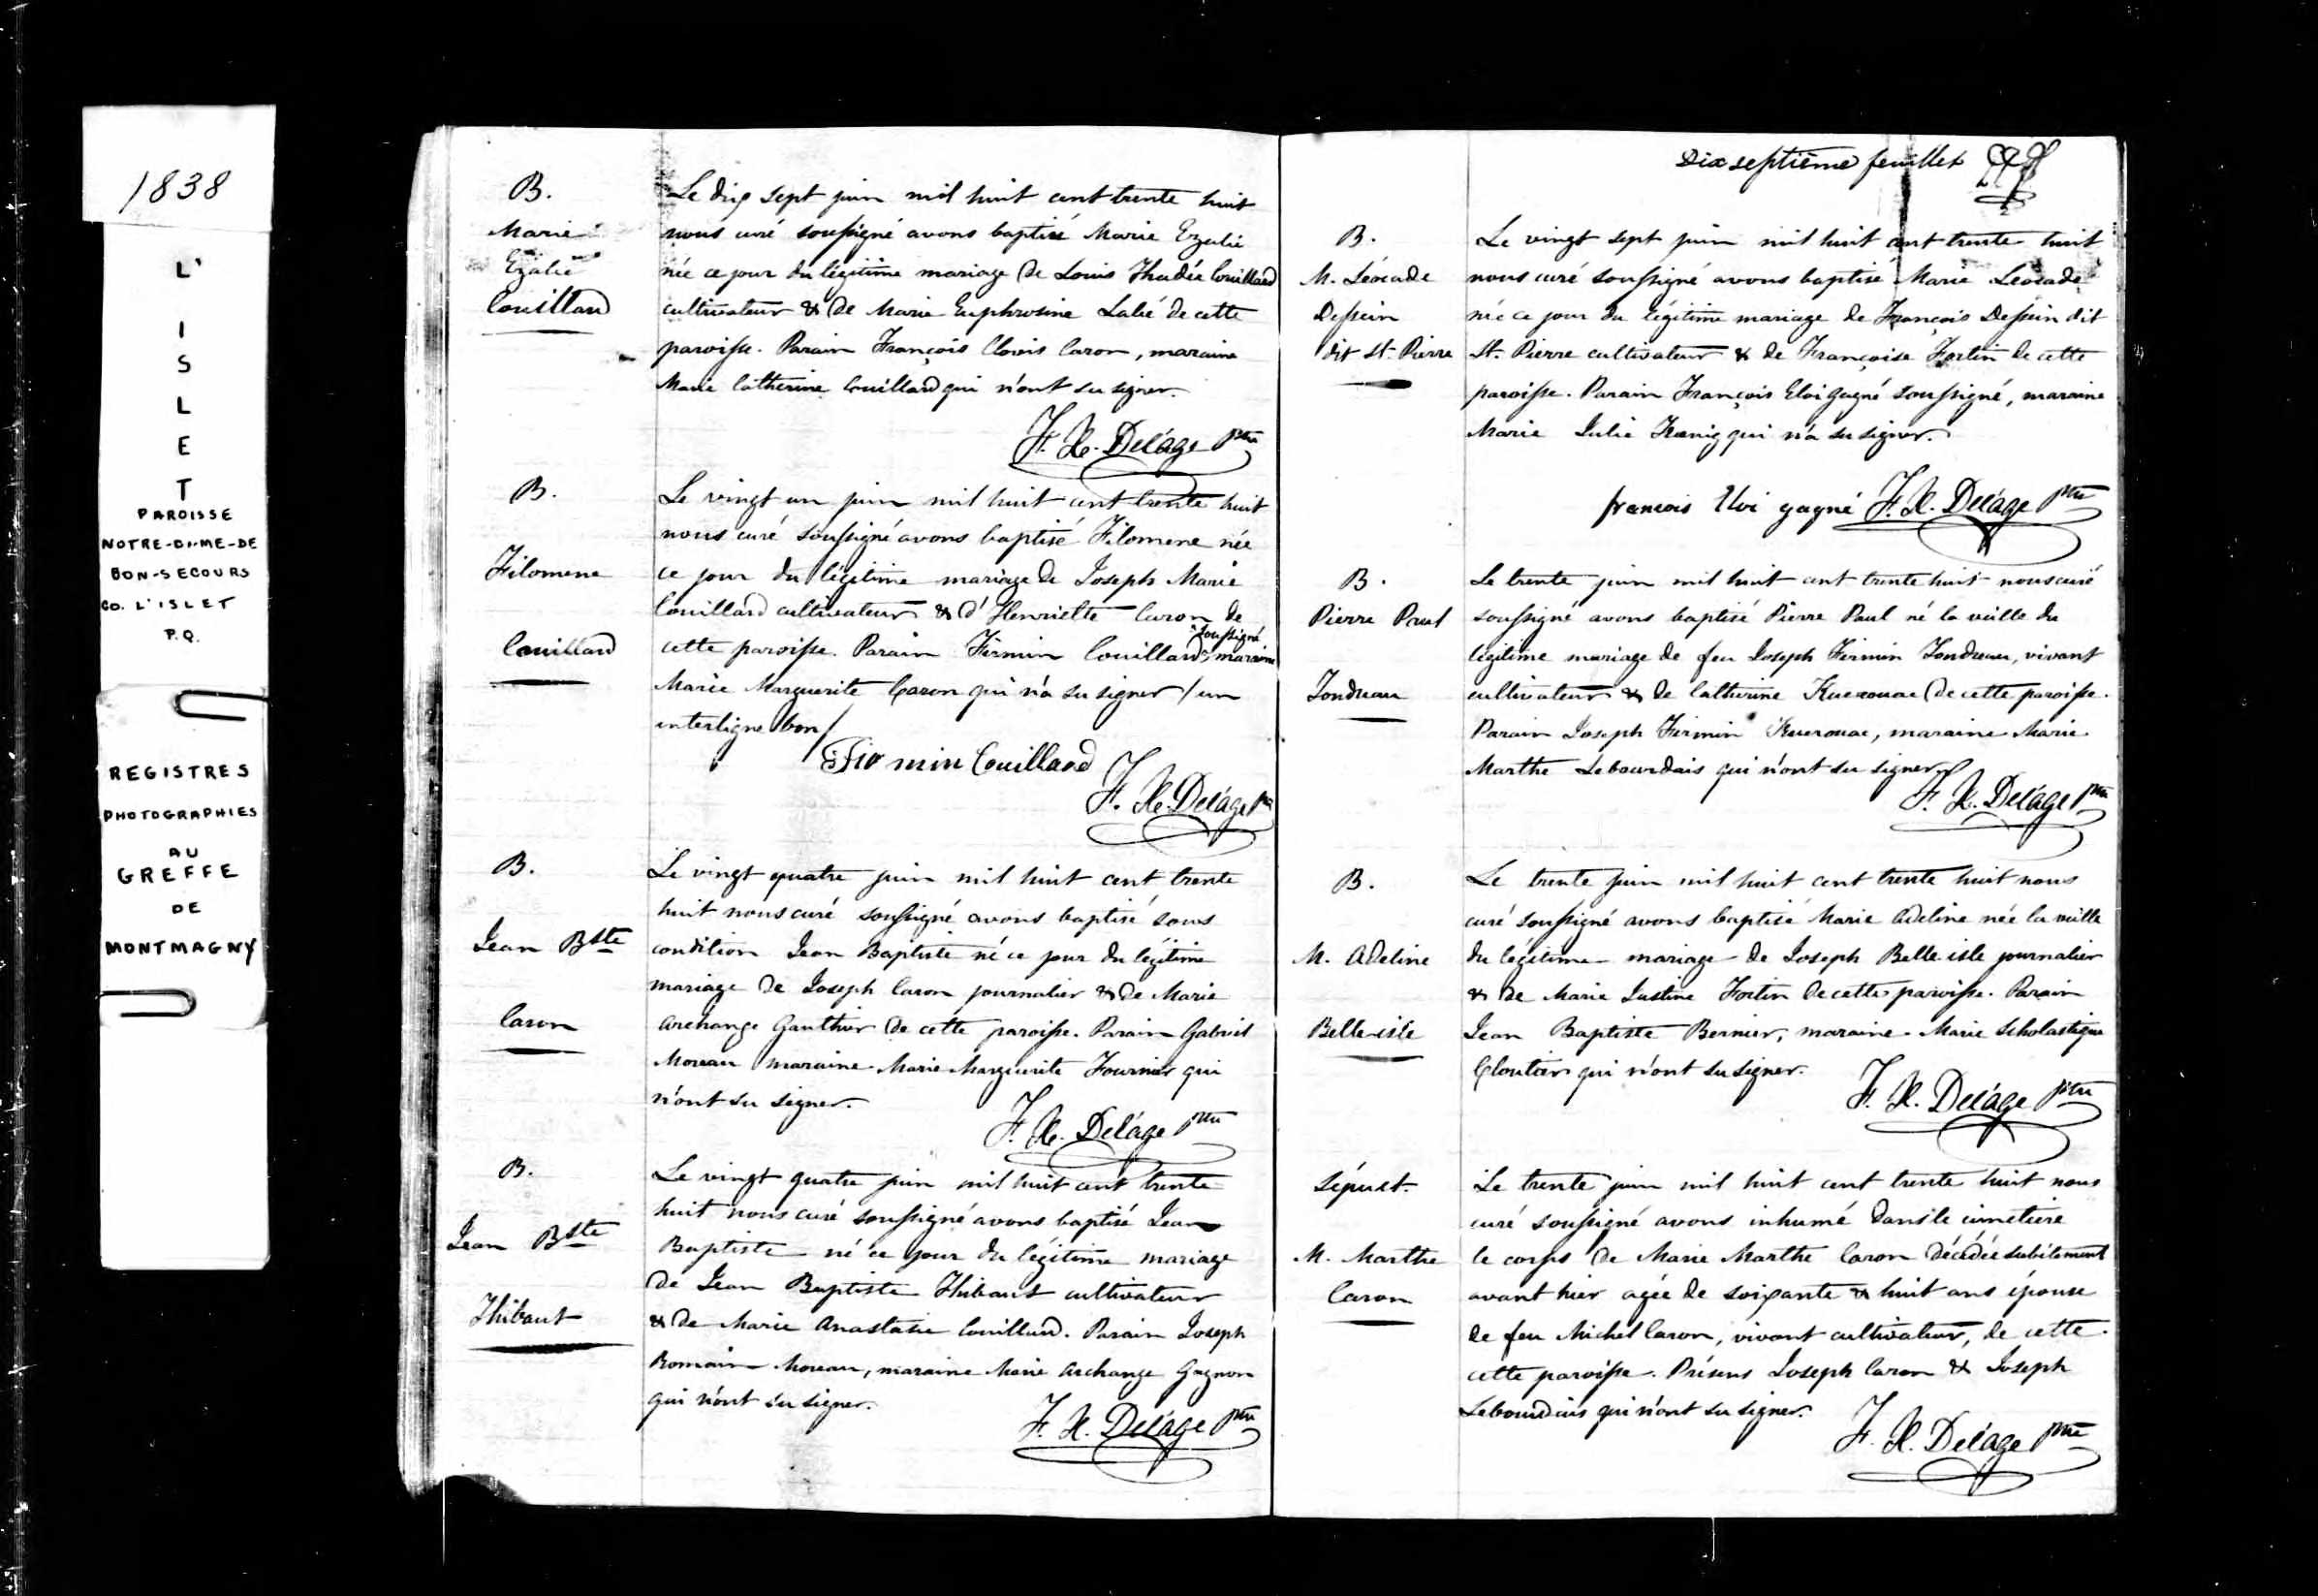 1838
L'
I
S
L
E
T
PAROISSE
NOTRE-DAME-DE
BON-SECOURS
CO. L'ISLET
P.Q.
REGISTRES
PHOTOGRAPHIES
AU
GREFFE
DE
MONTMAGNY
B.
Marie
Ezalie
Couillard
Le dix sept juin mil huit cent trente huit
nous curé soussigné avons baptisé Marie Ezalie
née ce jour du légitime mariage de Louis Thadée Couillard
cultivateur & de Marie Euphrosine Labé de cette
paroisse. Parain François Clovis Caron, maraine
Marie Catherine Couillard qui n'ont su signer.
F. X. Delâge Ptre
B.
Filomene
Couillard
Le vingt un juin mil huit cent trente huit
nous curé soussigné avons baptisé Filomene née
ce jour du légitime mariage de Joseph Marie
Couillard cultivateur & d'Henriette Caron de
cette paroisse. Parain Firmin Couillard soussigné, maraine
Marie Marguerite Caron qui n'a su signer / un
interligne bon /
Firmin Couillard
F. X. Delâge Ptre
B.
Jean Bste
Caron
Le vingt quatre juin mil huit cent trente
huit nous curé soussigné avons baptisé sous
condition Jean Baptiste né ce jour du légitime
mariage de Joseph Caron journalier & de Marie
Archange Gauthier de cette paroisse. Parain Gabriel
Moreau maraine Marie Marguerite Fournier qui
n'ont su signer.
F. X. Delâge Ptre
B.
Jean Bste
Thibaut
Le vingt quatre juin mil huit cent trente
huit nous curé soussigné avons baptisé Jean
Baptiste né ce jour du légitime mariage
de Jean Baptiste Thibaut cultivateur
& de Marie Anastasie Couillard. Parain Joseph
Romain Moreau, maraine Marie Archange Gagnon
qui n'ont su signer.
F. X. Delâge Ptre
Dix septième feuillet
B.
M. Léocade
Dessein
dit St. Pierre
Le vingt sept juin mil huit cent trente huit
nous curé soussigné avons baptisé Marie Léocade
née ce jour du légitime mariage de François Dessein dit
St. Pierre cultivateur & de Françoise Fortin de cette
paroisse. Parain François Eloi Gagné soussigné, maraine
Marie Julie Kœnig qui n'a su signer.
francois Eloi gagné F. X. Delâge Ptre
B.
Pierre Paul
Tondreau
Le trente juin mil huit cent trente huit nous curé
soussigné avons baptisé Pierre Paul né la veille du
légitime mariage de feu Joseph Firmin Tondreau, vivant
cultivateur & de Catherine Kuerouac de cette paroisse.
Parain Joseph Firmin Kuerouac, maraine Marie
Marthe Lebourdais qui n'ont su signer
F. X. Delâge Ptre
B.
M. Adeline
Belle-isle
Le trente juin mil huit cent trente huit nous
curé soussigné avons baptisé Marie Adeline née la veille
du légitime mariage de Joseph Belle isle journalier
& de Marie Justine Fortin de cette paroisse. Parain
Jean Baptiste Bernier, maraine Marie Scholastique
Cloutier qui n'ont su signer.
F. X. Delâge Ptre
Sépult.
M. Marthe
Caron
Le trente juin mil huit cent trente huit nous
curé soussigné avons inhumé dans le cimetière
le corps de Marie Marthe Caron décédée subitement
avant hier agée de soixante & huit ans épouse
de feu Michel Caron, vivant cultivateur, de cette
cette paroisse. Présens Joseph Caron & Joseph
Lebourdais qui n'ont su signer.
F. X. Delâge Ptre